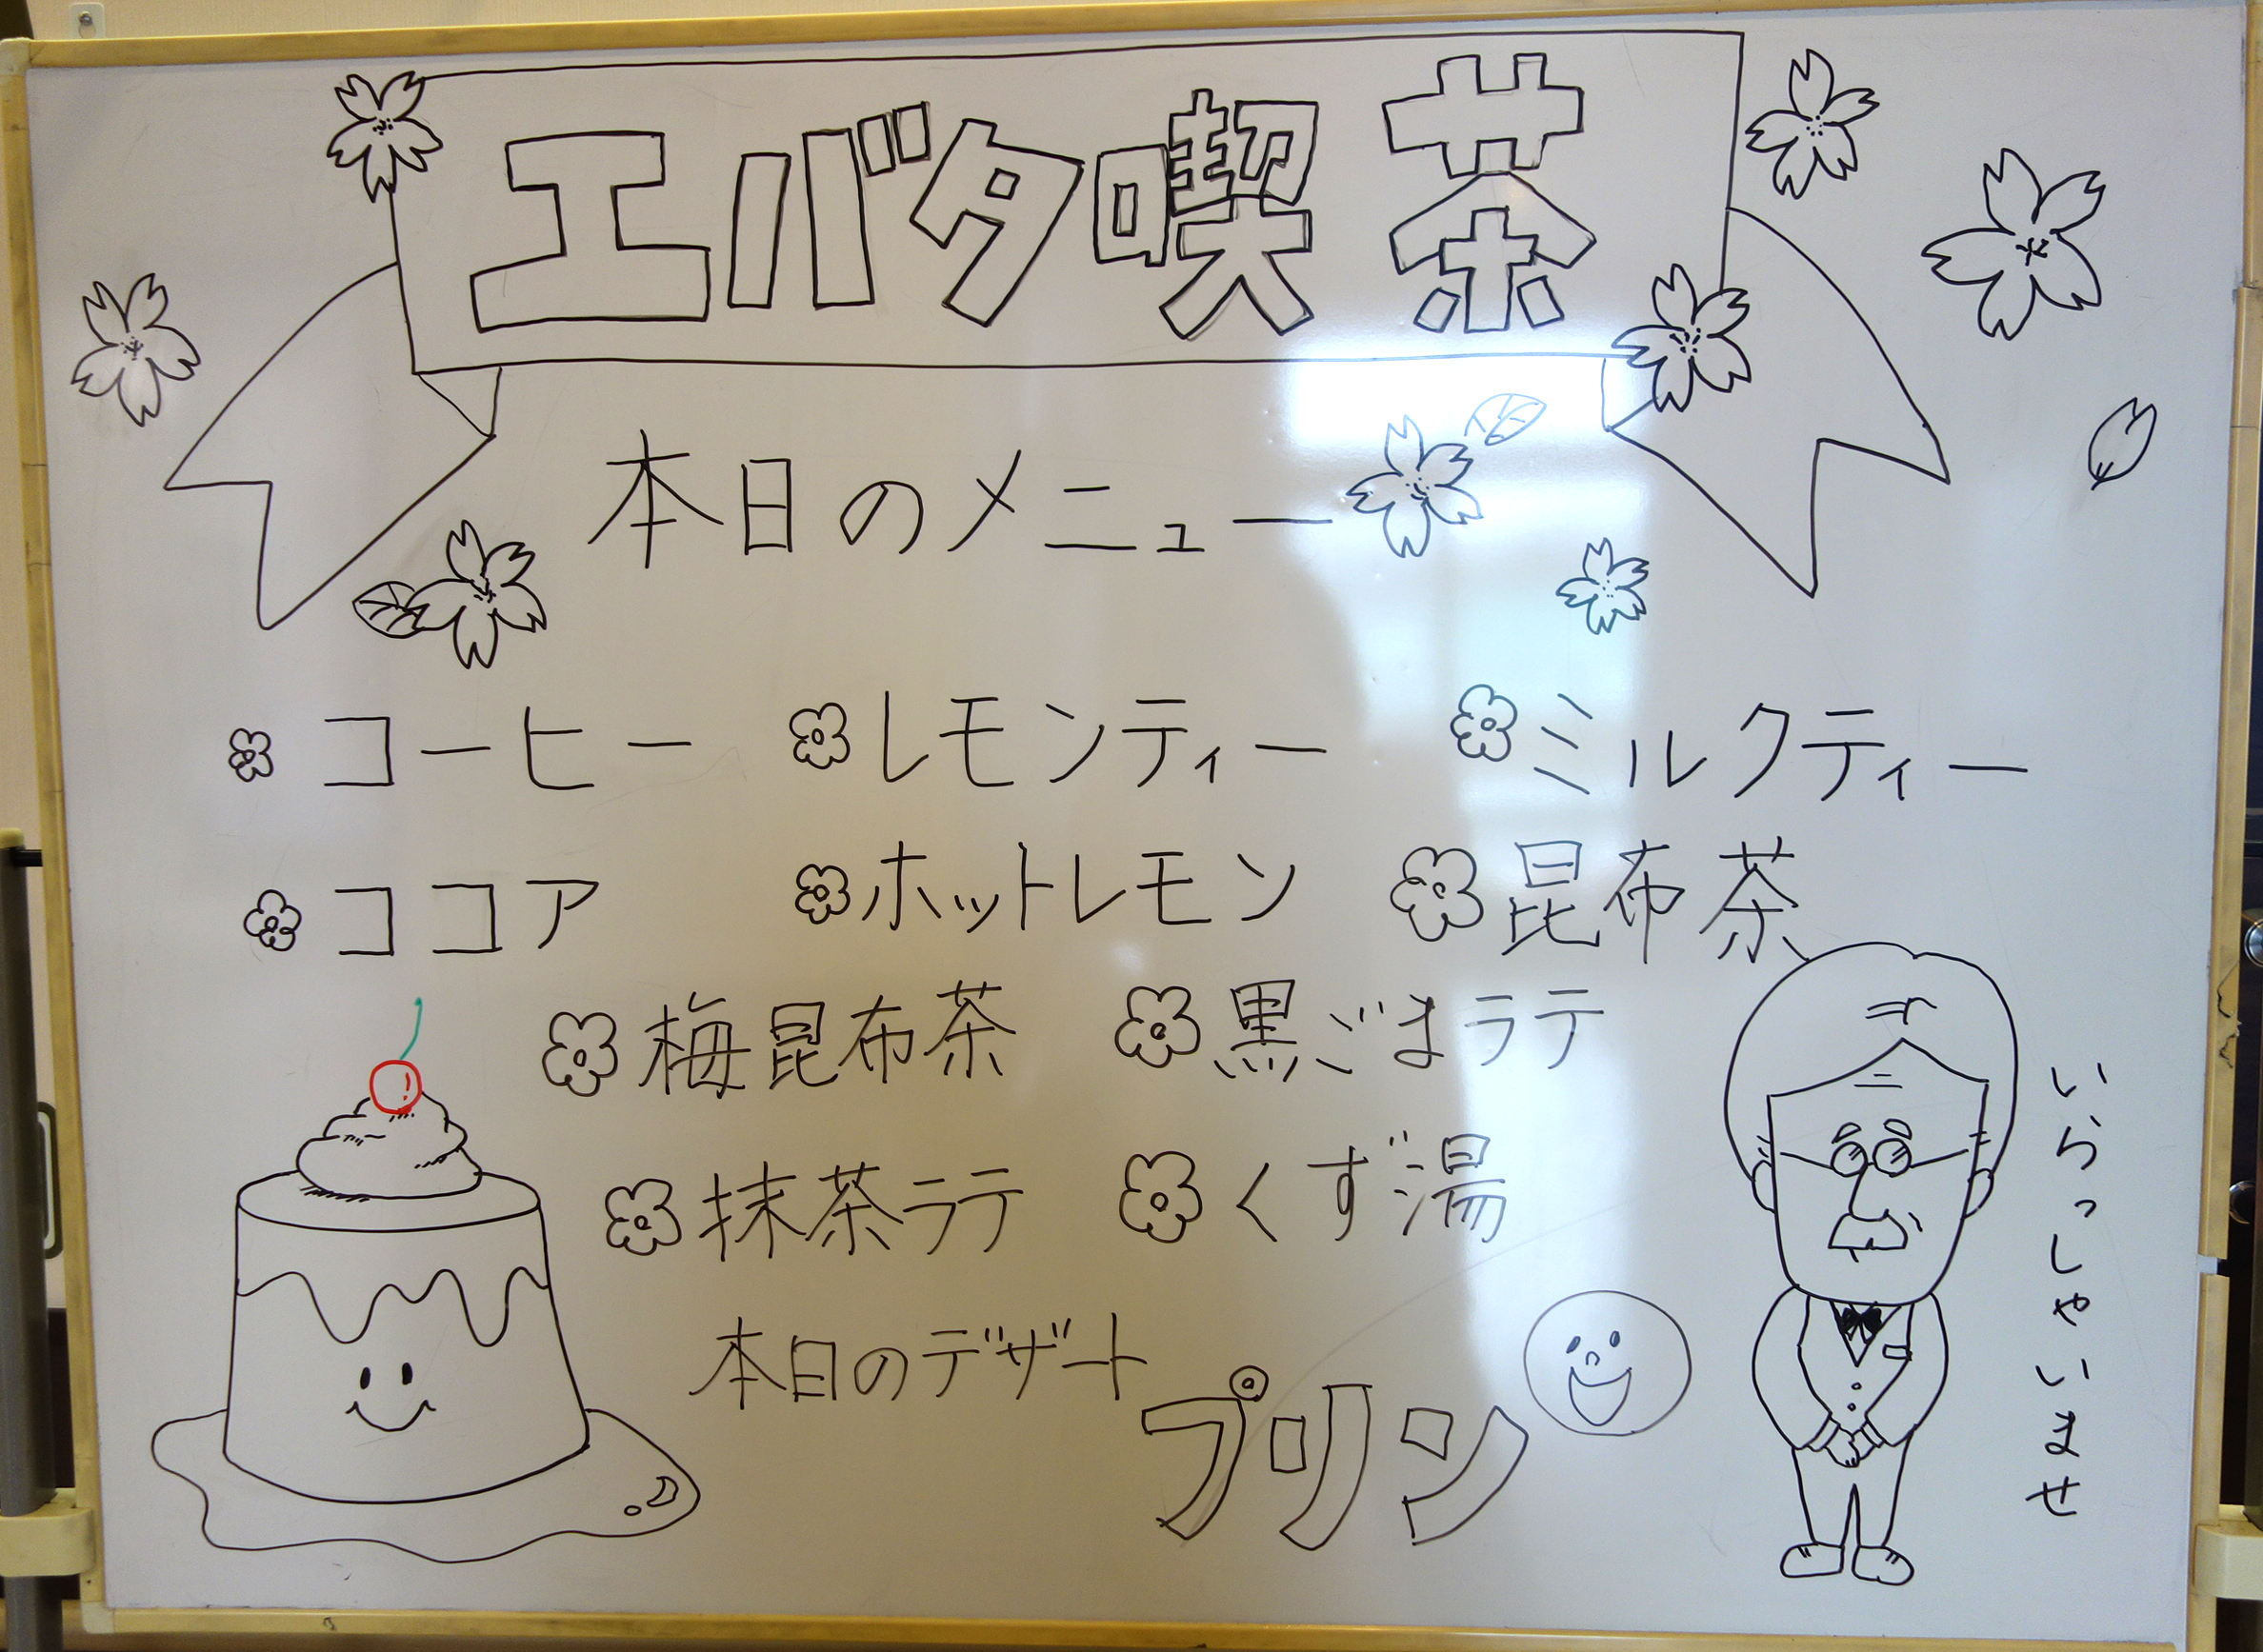 エバタ喫茶
本日のメニュー
コーヒー レモンティー ミルクティー
ココア ホットレモン 昆布茶
梅昆布茶 黒ごまラテ
抹茶ラテ くず湯
本日のデザート
プリン
いらっしゃいませ